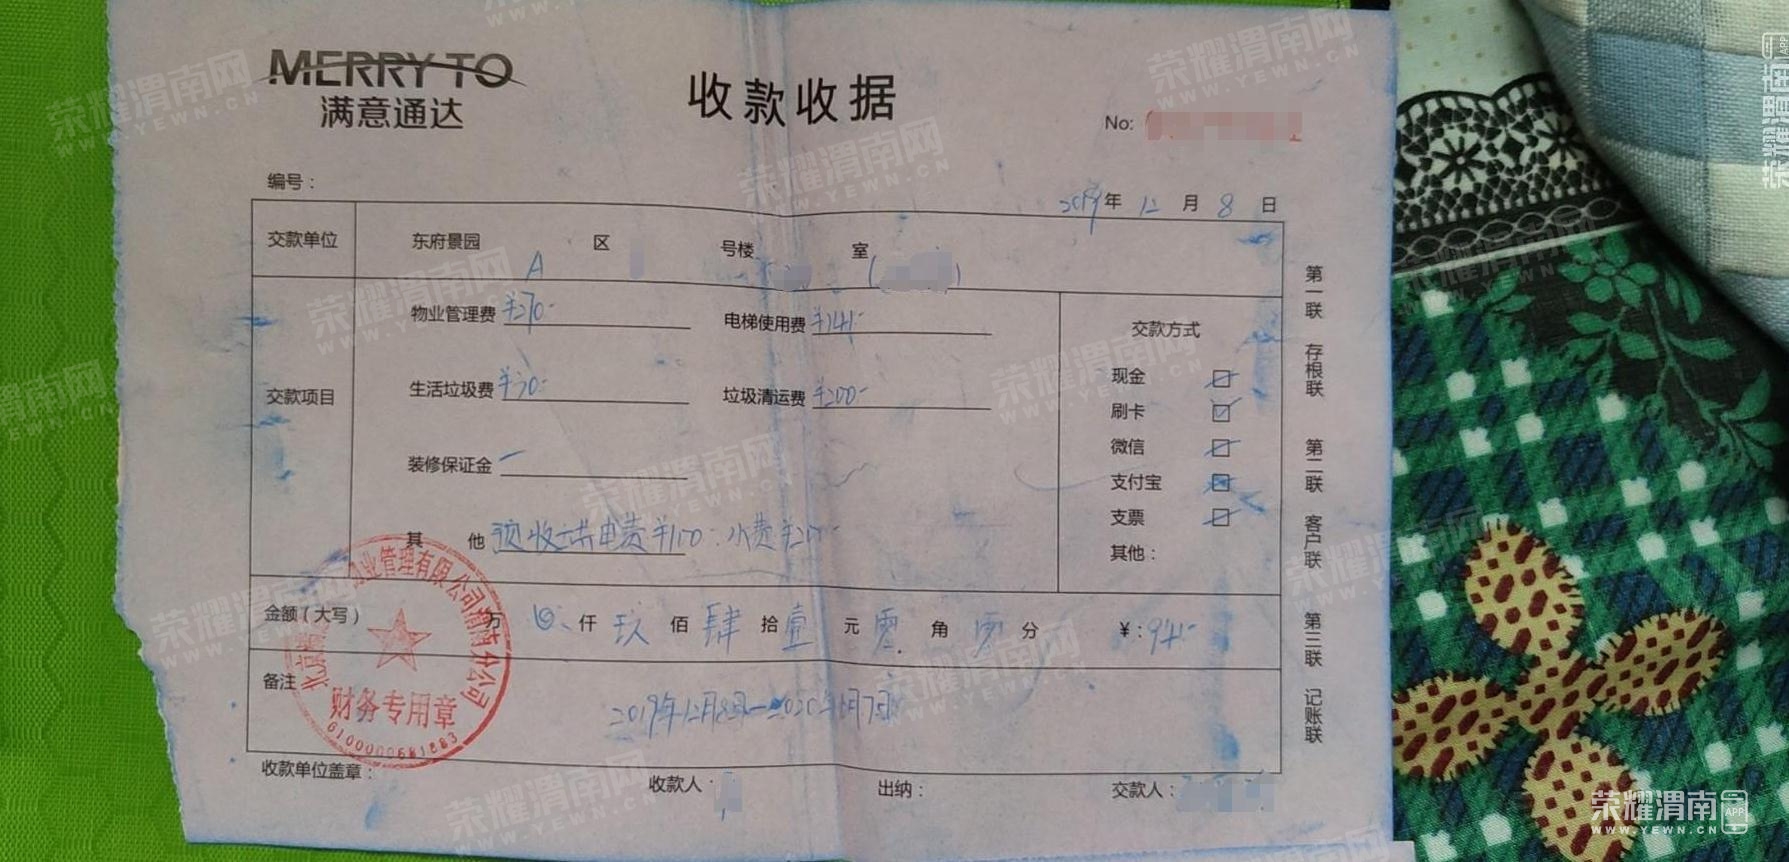 MERRY TO
满意通达
收款收据
No:
编号：
2019年 12 月 8 日
交款单位 东府景园 A 区 号楼 室
交款项目
物业管理费 ¥270- 电梯使用费 ¥141-
生活垃圾费 ¥30- 垃圾清运费 ¥200-
装修保证金 —
其 他 预收 电费¥100- 水费¥200-
交款方式
现金
刷卡
微信
支付宝
支票
其他：
金额（大写） 万 仟 玖 佰 肆 拾 壹 元 零 角 零 分 ¥：941-
备注 2019年12月8日—2020年6月7日
收款单位盖章： 收款人： 出纳： 交款人：
业管理有限公司渭南分公司
财务专用章
6100000681883
第一联 存根联 第二联 客户联 第三联 记账联
荣耀渭南网
WWW.YEWN.CN
荣耀渭南 APP
WWW.YEWN.CN